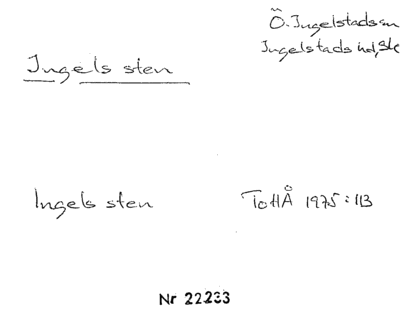 Ö. Ingelstads sn
Ingelstads hd, Sk
Ingels sten
Ingels sten ToHÅ 1975:113
Nr 22233